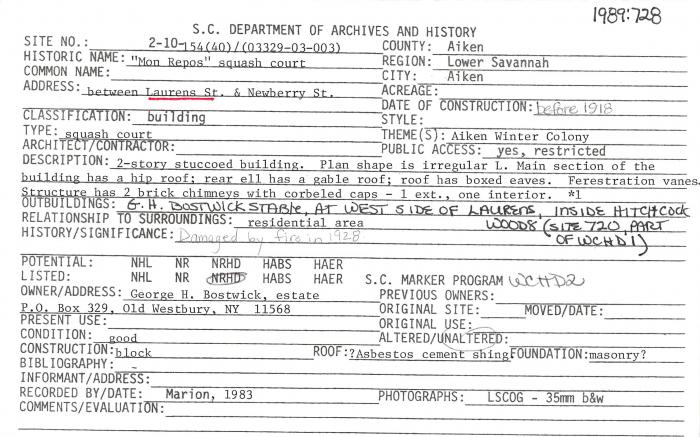 1989:728
S.C. DEPARTMENT OF ARCHIVES AND HISTORY
SITE NO.: 2-10-154(40)/(03329-03-003) COUNTY: Aiken
HISTORIC NAME: "Mon Repos" squash court REGION: Lower Savannah
COMMON NAME: CITY: Aiken
ADDRESS: between Laurens St. & Newberry St. ACREAGE:
DATE OF CONSTRUCTION: before 1918
CLASSIFICATION: building STYLE:
TYPE: squash court THEME(S): Aiken Winter Colony
ARCHITECT/CONTRACTOR: PUBLIC ACCESS: yes, restricted
DESCRIPTION: 2-story stuccoed building. Plan shape is irregular L. Main section of the
building has a hip roof; rear ell has a gable roof; roof has boxed eaves. Ferestration vanes.
Structure has 2 brick chimneys with corbeled caps - 1 ext., one interior. *1
OUTBUILDINGS: G. H. BOSTWICK STABLE, AT WEST SIDE OF LAURENS, INSIDE HITCHCOCK
RELATIONSHIP TO SURROUNDINGS: residential area WOODS (SITE 720, PART
HISTORY/SIGNIFICANCE: Damaged by fire in 1928 OF WCHD1)
POTENTIAL: NHL NR NRHD HABS HAER
LISTED: NHL NR NRHD HABS HAER S.C. MARKER PROGRAM WCHD2
OWNER/ADDRESS: George H. Bostwick, estate PREVIOUS OWNERS:
P.O. Box 329, Old Westbury, NY 11568 ORIGINAL SITE: MOVED/DATE:
PRESENT USE: ORIGINAL USE:
CONDITION: good ALTERED/UNALTERED:
CONSTRUCTION: block ROOF: ?Asbestos cement shing FOUNDATION: masonry?
BIBLIOGRAPHY:
INFORMANT/ADDRESS:
RECORDED BY/DATE: Marion, 1983 PHOTOGRAPHS: LSCOG - 35mm b&w
COMMENTS/EVALUATION: